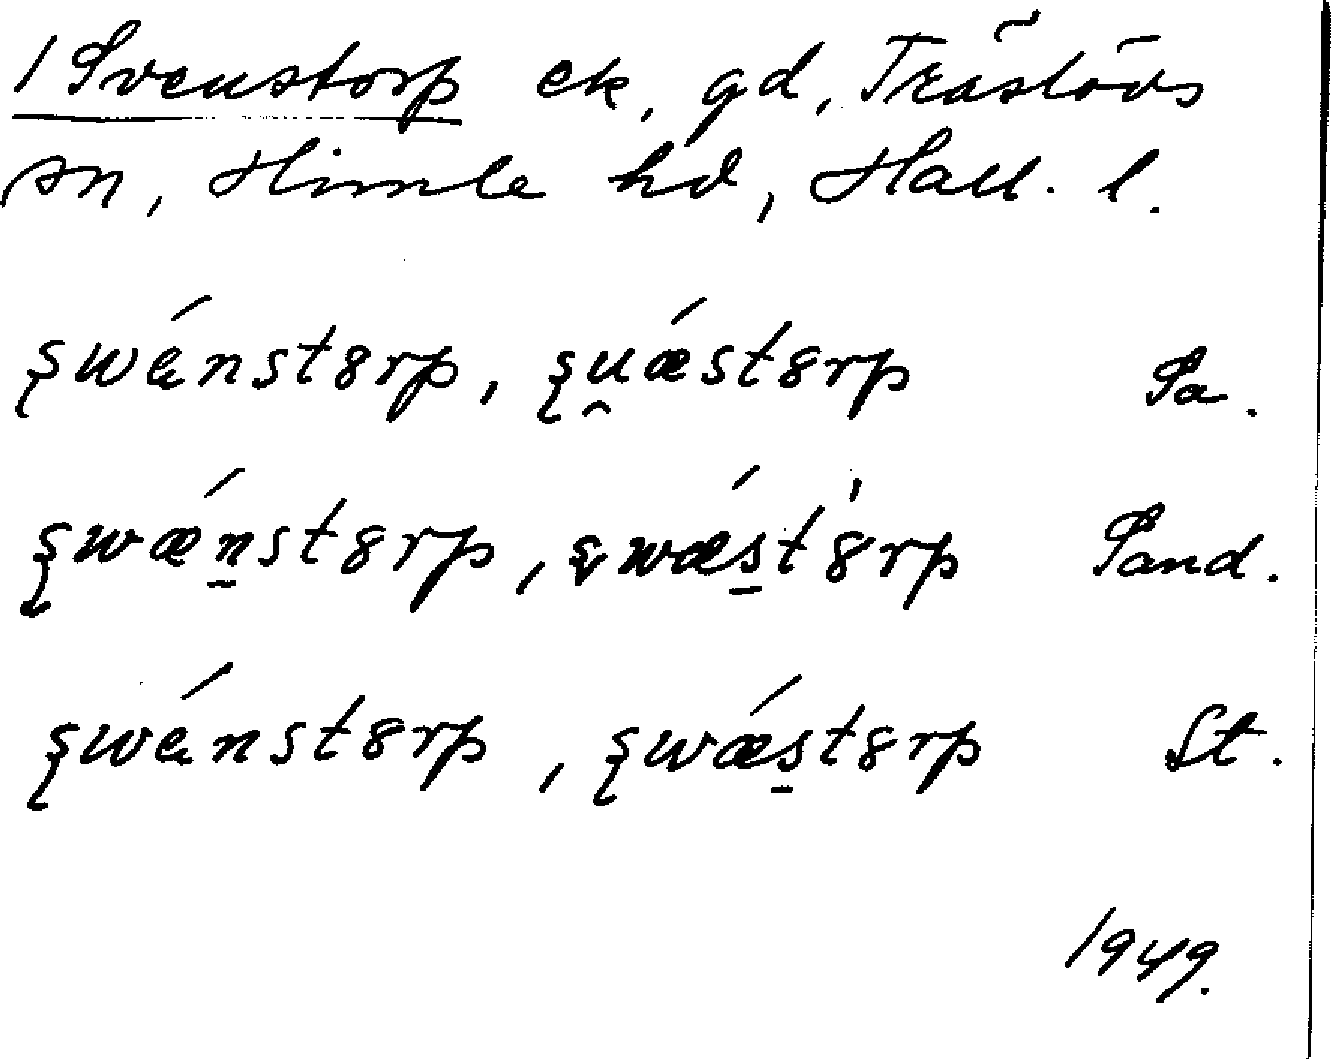 1 Svenstorp ek, gd, Träslövs
sn, Himle hd, Hall. l.
swǽnstȣrp, su̯ǽstȣrp Sa.
swǽn̲stȣrp, swǽs̲t'ȣrp Sand.
swǽnstȣrp, swǽs̲tȣrp St.
1949.